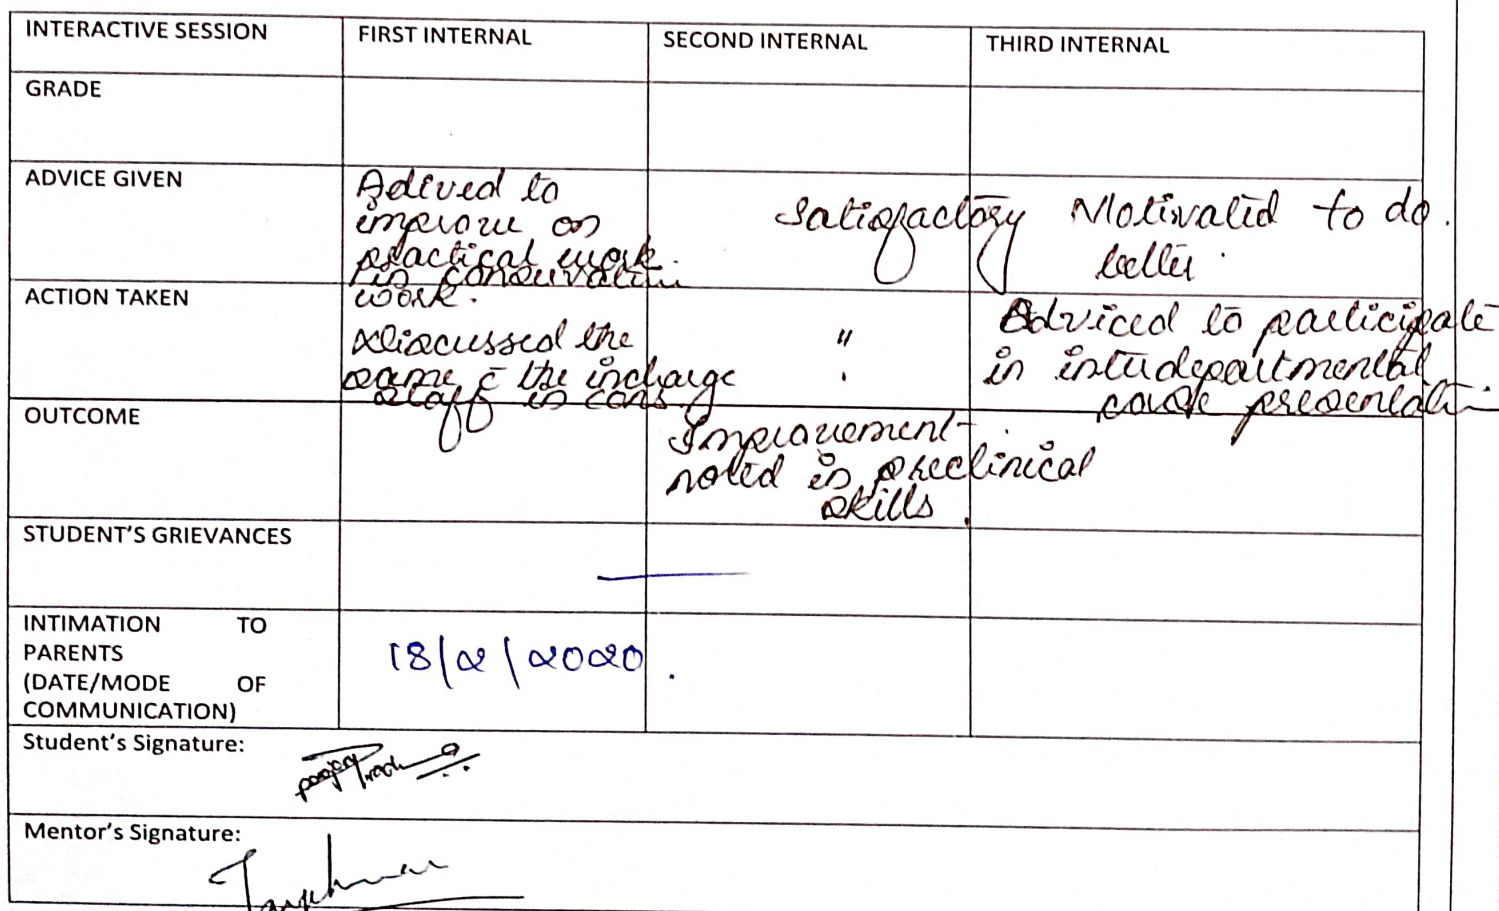 INTERACTIVE SESSION FIRST INTERNAL SECOND INTERNAL THIRD INTERNAL
GRADE
ADVICE GIVEN
Adived to
improve on
practical work.
in conservation
work.
Satisfactory
Motivated to do.
better.
ACTION TAKEN
Discussed the
same c̄ the incharge
staff in cons
"
Adviced to participate
in interdepartmental
case presentati
OUTCOME
Improvement
noted in preclinical
skills.
STUDENT'S GRIEVANCES
INTIMATION TO
PARENTS
(DATE/MODE OF
COMMUNICATION)
18/2/2020.
Student's Signature:
Mentor's Signature: